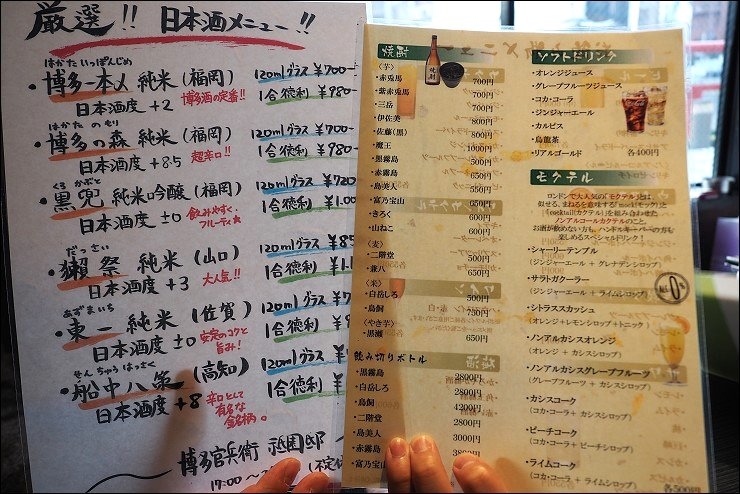 厳選!! 日本酒メニュー!!
はかた いっぽんじめ
・博多一本〆 純米(福岡) 120mlグラス ¥700-
日本酒度 +2 博多酒の定番!! 1合徳利 ¥980-
はかた の もり
・博多の森 純米(福岡) 120mlグラス ¥700-
日本酒度 +8.5 超辛口!! 1合徳利 ¥980-
くろ かぶと
・黒兜 純米吟醸(福岡) 120mlグラス ¥720
日本酒度 ±0 飲みやすく、フルーティ☆ 1合徳利 ¥1.00
だっさい
・獺祭 純米(山口) 120mlグラス ¥85
日本酒度 +3 大人気!! 1合徳利 ¥1.
あずまいち
・東一 純米(佐賀) 120mlグラス
日本酒度 ±0 安定のコクと旨み! 1合徳利
せん ちゅう はっ さく
・船中八策(高知) 120mlグラス
日本酒度 +8 辛口として有名な銘柄。 1合徳利
博多官兵衛 祇園邸
17:00〜 (不定
焼酎
〈芋〉
・赤兎馬 700円
・紫赤兎馬 700円
・三岳 700円
・伊佐美 800円
・佐藤(黒) 800円
・魔王 1000円
・黒霧島 500円
・赤霧島 650円
・島美人 550円
・富乃宝山 650円
・きろく 600円
・山ねこ 600円
〈麦〉
・二階堂 500円
・兼八 650円
〈米〉
・白岳しろ 500円
・鳥飼 750円
〈やき芋〉
・黒瀬 650円
飲み切りボトル
・黒霧島 2800円
・白岳しろ 2800円
・鳥飼 4200円
・二階堂 2800円
・島美人 3000円
・赤霧島
・富乃宝山
ソフトドリンク
・オレンジジュース
・グレープフルーツジュース
・コカ・コーラ
・ジンジャーエール
・カルピス
・烏龍茶
・リアルゴールド 各400円
モクテル
ロンドンで大人気の「モクテル」とは
似せる、まねるを意味する「mock(モック)」と
「cocktail(カクテル)」を組み合わせた
ノンアルコールカクテルのこと。
お酒が飲めない方も、ハンドルキーパーの方も
楽しめるスペシャルドリンク!
・シャーリーテンプル
(ジンジャーエール + グレナデンシロップ)
・サラトガクーラー
(ジンジャーエール + ライムシロップ)
・シトラススカッシュ
(オレンジ+レモンシロップ+トニック)
・ノンアルカシスオレンジ
(オレンジ + カシスシロップ)
・ノンアルカシスグレープフルーツ
(グレープフルーツ + カシスシロップ)
・カシスコーク
(コカ・コーラ + カシスシロップ)
・ピーチコーク
(コカ・コーラ + ピーチシロップ)
・ライムコーク
(コカ・コーラ + ライムシロップ)
各500円